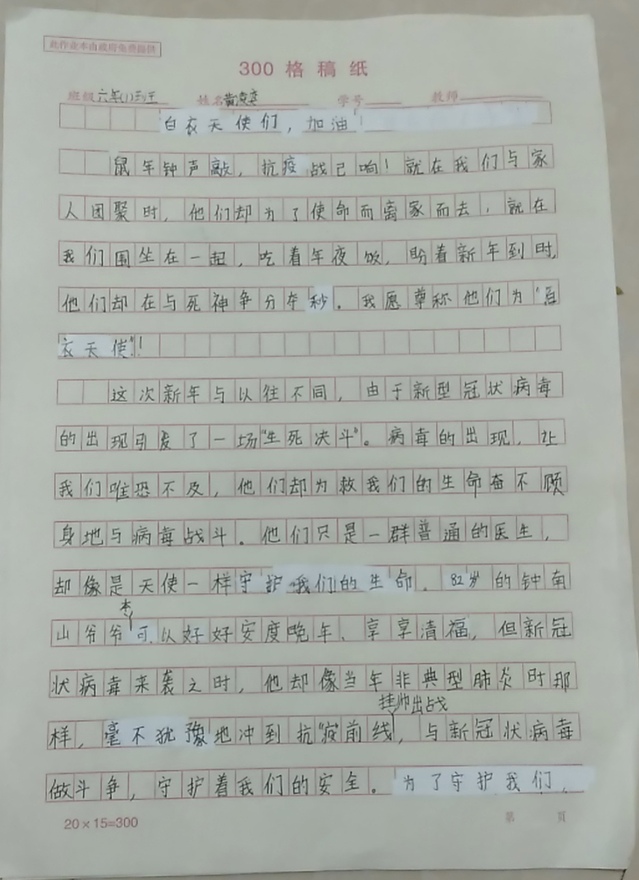 此作业本由政府免费提供
300 格 稿 纸
班级 六年(1)班 姓名 学号 教师
白衣天使们，加油！
鼠年钟声敲，抗疫战已响！就在我们与家
人团聚时，他们却为了使命而离家而去，就在
我们围坐在一起，吃着年夜饭，盼着新年到时，
他们却在与死神争分夺秒。我愿尊称他们为“白
衣天使”！
这次新年与以往不同，由于新型冠状病毒
的出现引发了一场“生死决斗”。病毒的出现，让
我们唯恐不及，他们却为救我们的生命奋不顾
身地与病毒战斗。他们只是一群普通的医生，
却像是天使一样守护我们的生命。82岁的钟南
山爷爷本可以好好安度晚年、享享清福，但新冠
状病毒来袭之时，他却像当年非典型肺炎时那
样，毫不犹豫地冲到抗“疫”前线，挂帅出战，与新冠状病毒
做斗争，守护着我们的安全。为了守护我们，
20×15=300 第 页